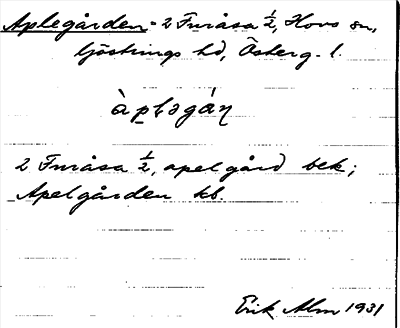 Aplegården = 2 Furåsa 1/2, Hovs sn,
Göstrings hd, Österg. l.
àpləgáṇ
2 Furåsa 1/2, apelgård bek;
Apelgården kb.
Erik Alm 1931